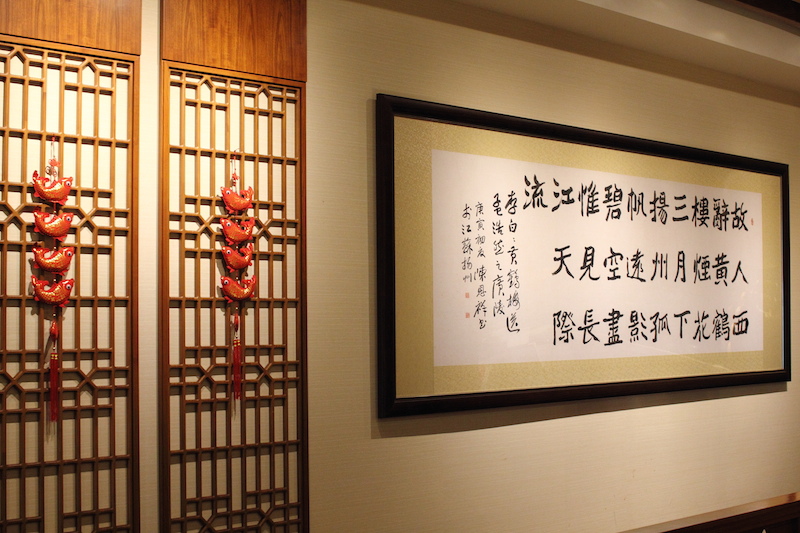 故人西
辭黃鶴
樓煙花
三月下
揚州孤
帆遠影
碧空盡
惟見長
江天際
流
李白黃鶴樓送
孟浩然之廣陵
庚寅初夏陳恩祥書
於江蘇揚州